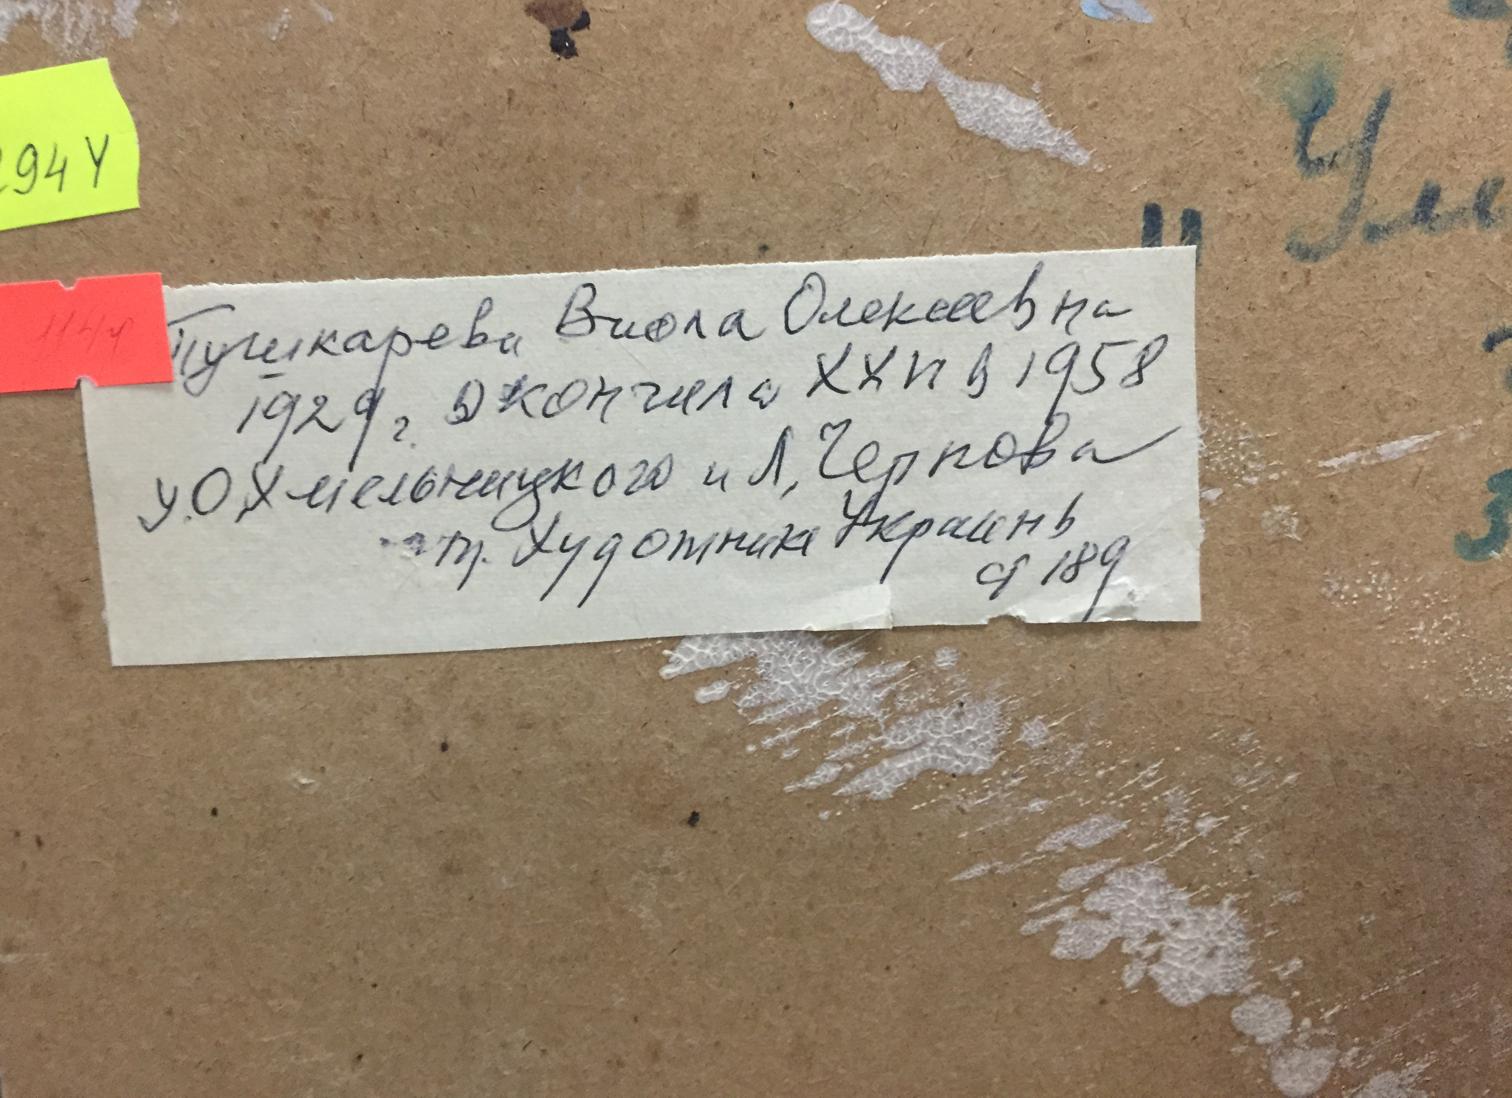 294У
" Ум
114у
Пушкарева Виола Олексеевна
1929г. Окончила ХХП в 1958
у.О,Хмельницкого и Л, Чернова
т. Художники Украинь
ст 189